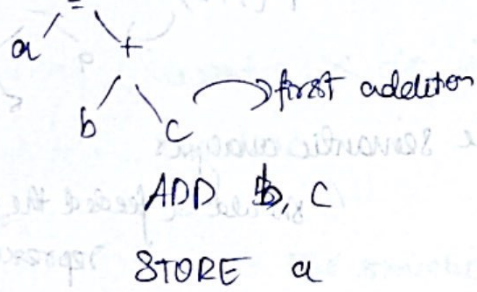 =
a +
b c first addition
ADD b, c
STORE a